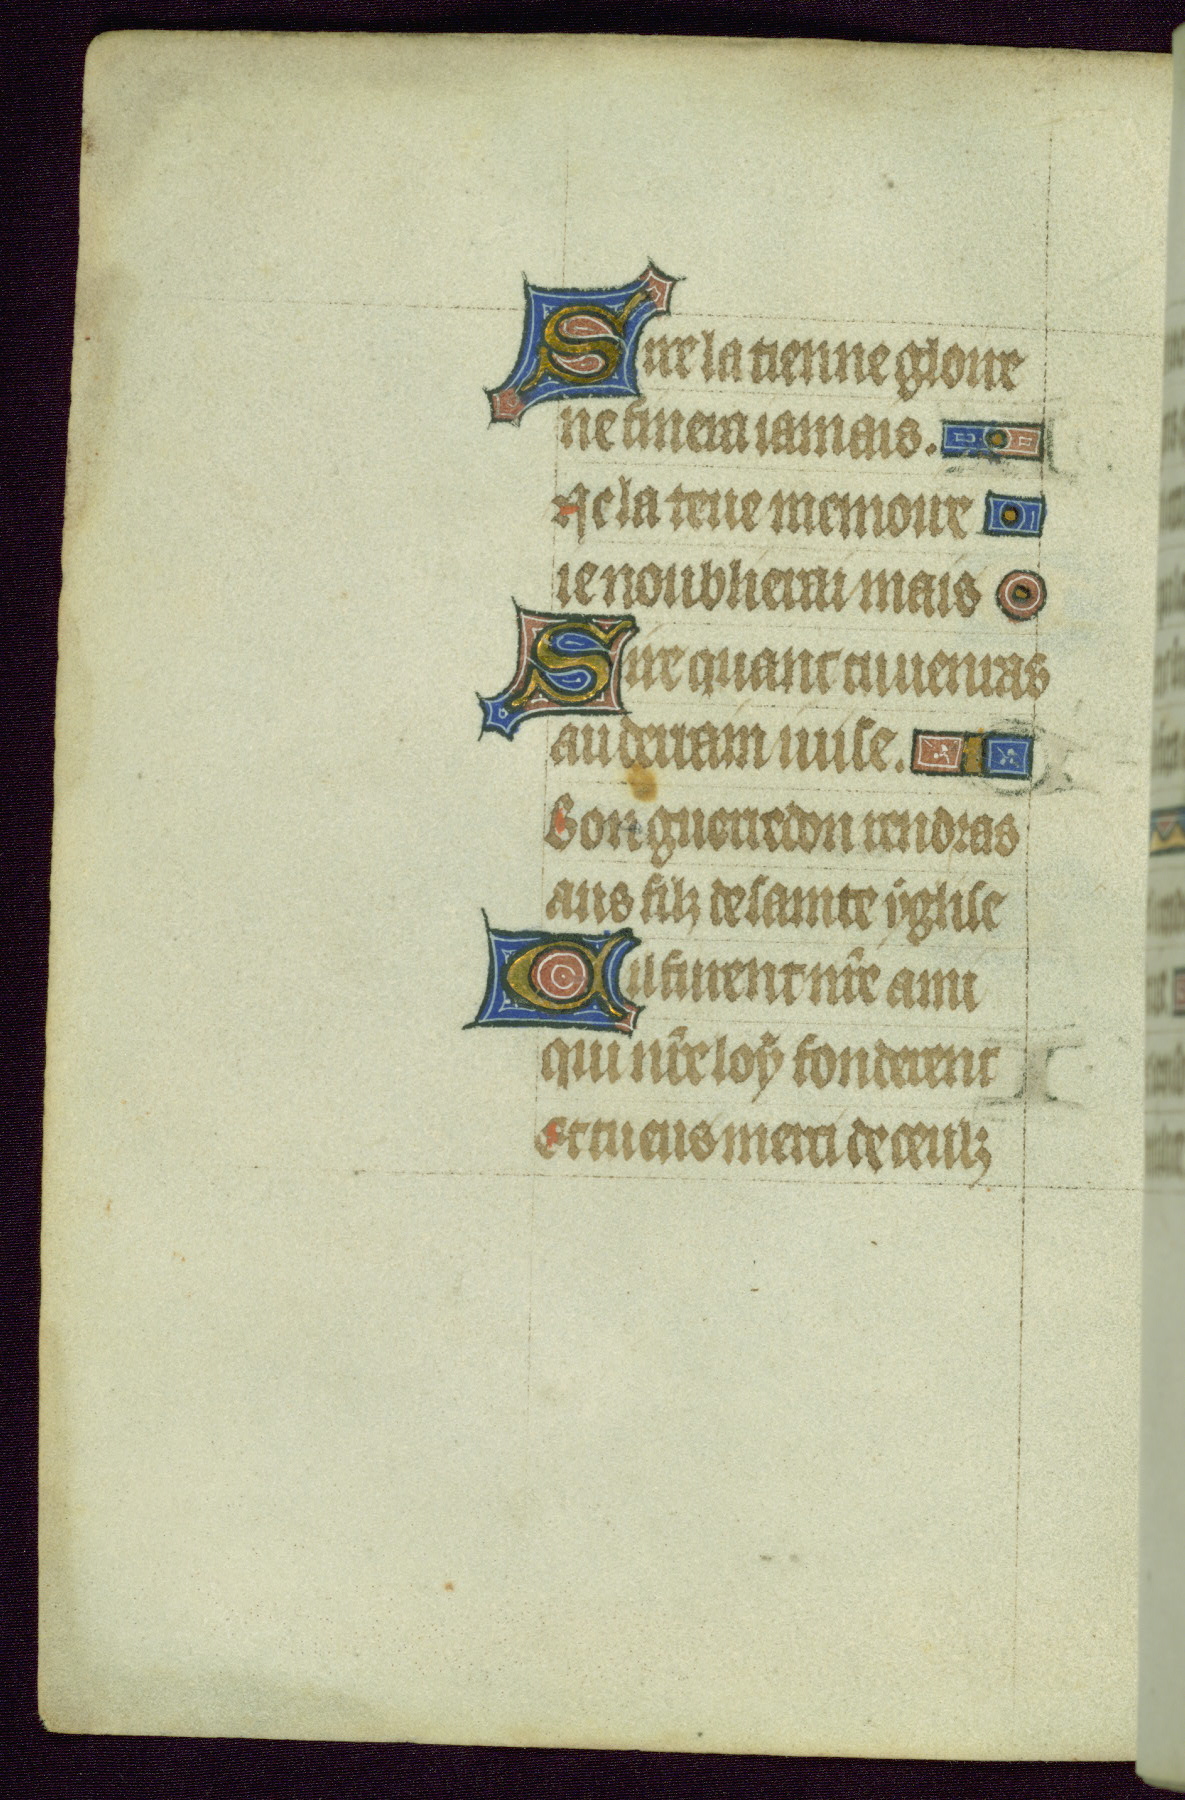 Sire la tienne gloire
ne finera iamais.
Ne la teue memoire
ie noublierai mais
Sire quant tu uenras
au derrain iuise.
Bon guerredon rendras
aus filz de sainte yglise
Cil furent nr̃e ami
qui nr̃e loy fonderent
Et tu eus merci de ceulz